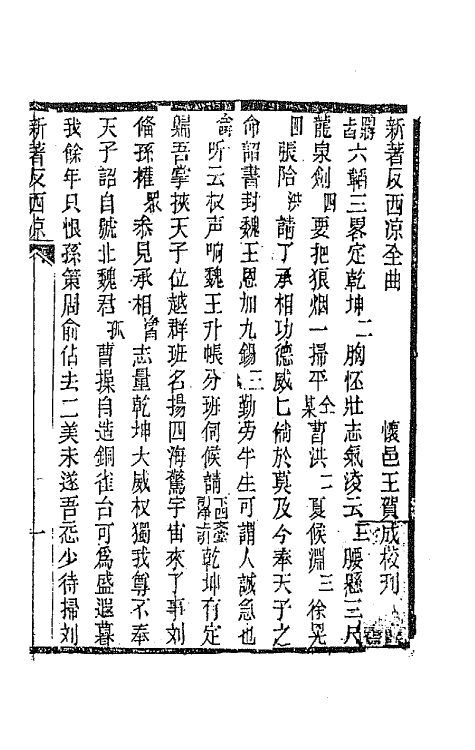 新著反西凉全曲 懷邑王賀成校刊
六韜三畧定乾坤二胸怀壯志氣淩云三腰懸三尺
龍泉剑四要把狼烟一掃平全某曹洪二夏候淵三徐晃
四張郃洪請了承相功德威七倘於莫及今奉天子之
命詔書封魏王恩加九錫三勤劳半生可謂人誠急也
听云板声响魏王升帳分班伺候請乾坤有定
歸吾掌挾天子位越群班名揚四海驚宇宙來了事刘
俻孫権眾叅見承相曹志量乾坤大威权獨我尊不奉
天子詔自號北魏君孤曹操自造銅雀台可為盛遐暮
我餘年只恨孫策周俞佔去二美未遂吾忘少待掃刘
新著反西凉 一